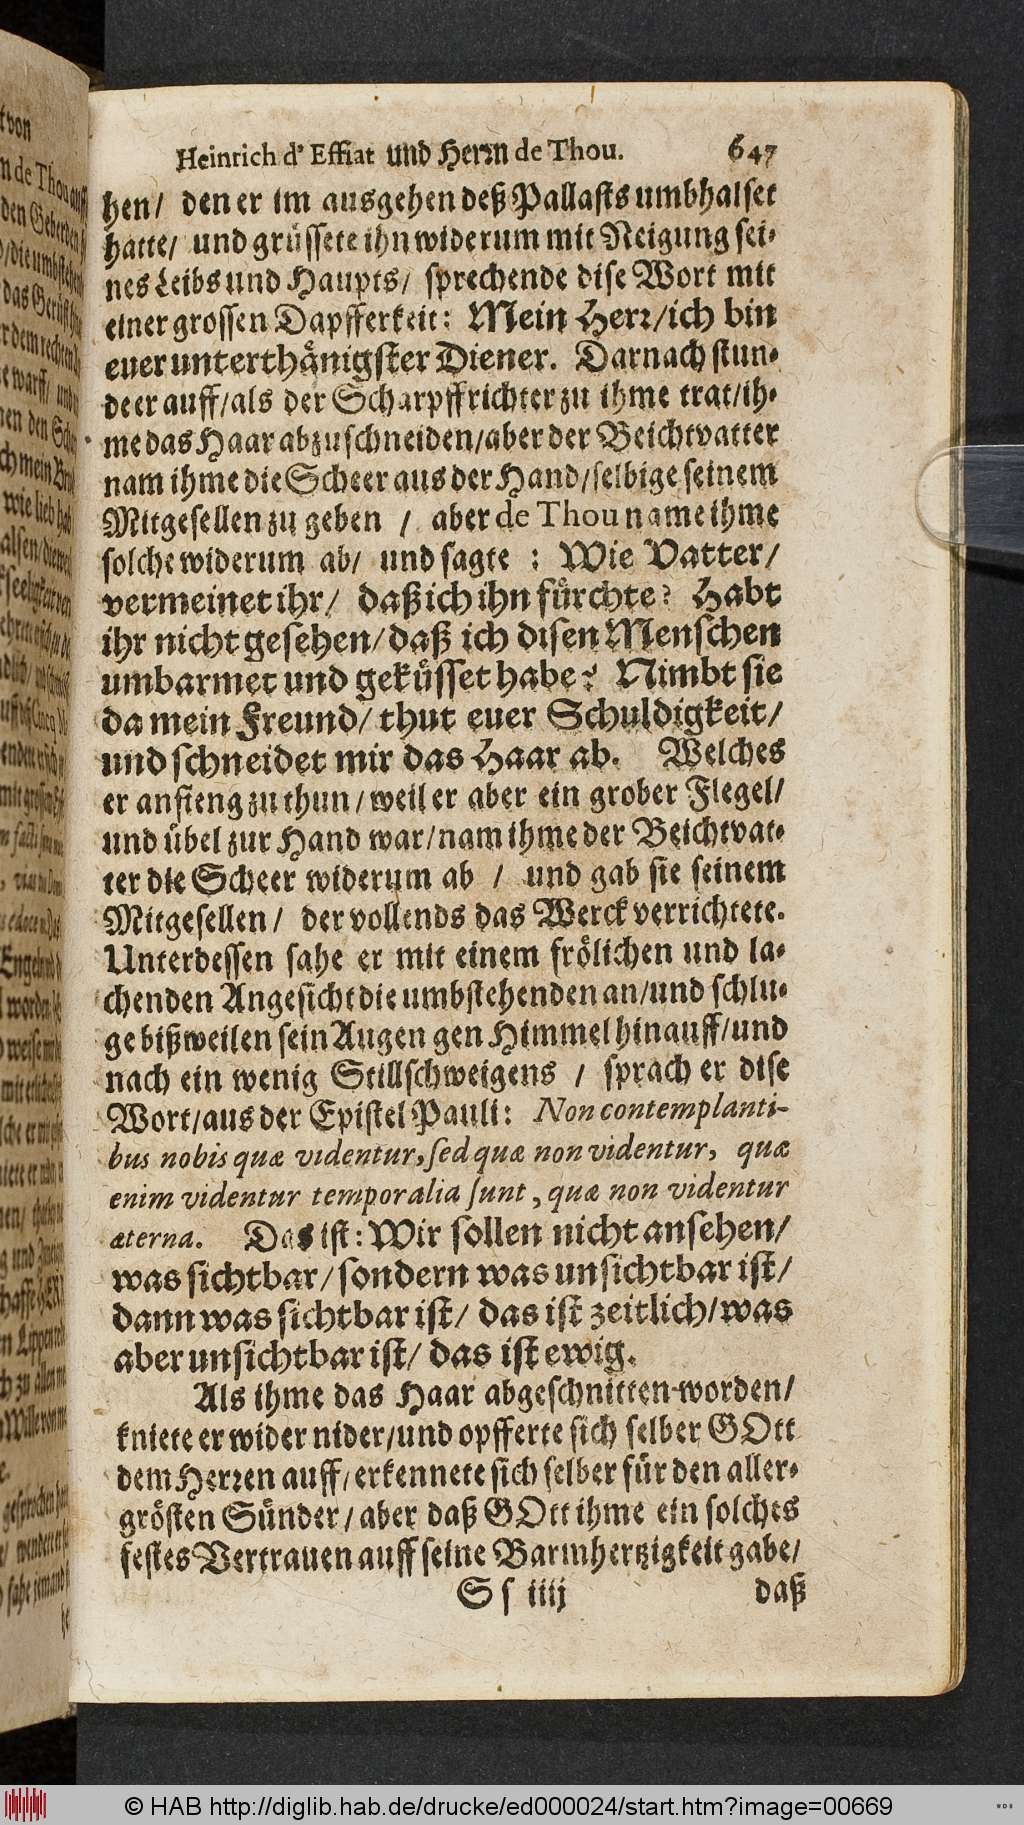 Heinrich d' Effiat und Herrn de Thou. 647
hen/ den er im ausgehen deß Pallasts umbhalset
hatte/ und grüssete ihn widerum mit Neigung sei-
nes Leibs und Haupts/ sprechende dise Wort mit
einer grossen Dapfferkeit: Mein Herr/ich bin
euer unterthänigster Diener. Darnach stun-
de er auff/als der Scharpffrichter zu ihme trat/ih-
me das Haar abzuschneiden/aber der Beichtvatter
nam ihme die Scheer aus der Hand/selbige seinem
Mitgesellen zu geben / aber de Thou name ihme
solche widerum ab/ und sagte : Wie Vatter/
vermeinet ihr/ daß ich ihn fürchte? Habt
ihr nicht gesehen/daß ich disen Menschen
umbarmet und geküsset habe? Nimbt sie
da mein Freund/ thut euer Schuldigkeit/
und schneidet mir das Haar ab. Welches
er anfieng zu thun/weil er aber ein grober Flegel/
und übel zur Hand war/nam ihme der Beichtvat-
ter die Scheer widerum ab / und gab sie seinem
Mitgesellen/ der vollends das Werck verrichtete.
Unterdessen sahe er mit einem frölichen und la-
chenden Angesicht die umbstehenden an/und schlu-
ge bißweilen sein Augen gen Himmel hinauff/und
nach ein wenig Stillschweigens / sprach er dise
Wort/aus der Epistel Pauli: Non contemplanti-
bus nobis quæ videntur, sed quæ non videntur, quæ
enim videntur temporalia sunt, quæ non videntur
æterna. Das ist: Wir sollen nicht ansehen/
was sichtbar/sondern was unsichtbar ist/
dann was sichtbar ist/ das ist zeitlich/was
aber unsichtbar ist/ das ist ewig.
Als ihme das Haar abgeschnitten worden/
kniete er wider nider/und opfferte sich selber GOtt
dem Herren auff/erkennete sich selber für den aller-
grösten Sünder/aber daß GOtt ihme ein solches
festes Vertrauen auff seine Barmhertzigkeit gabe/
S s iiij daß
© HAB http://diglib.hab.de/drucke/ed000024/start.htm?image=00669